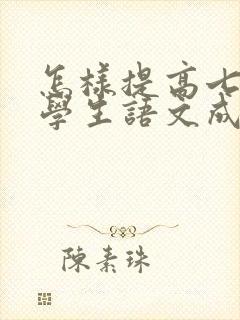 怎樣提高七
學生語文成
陳素珠